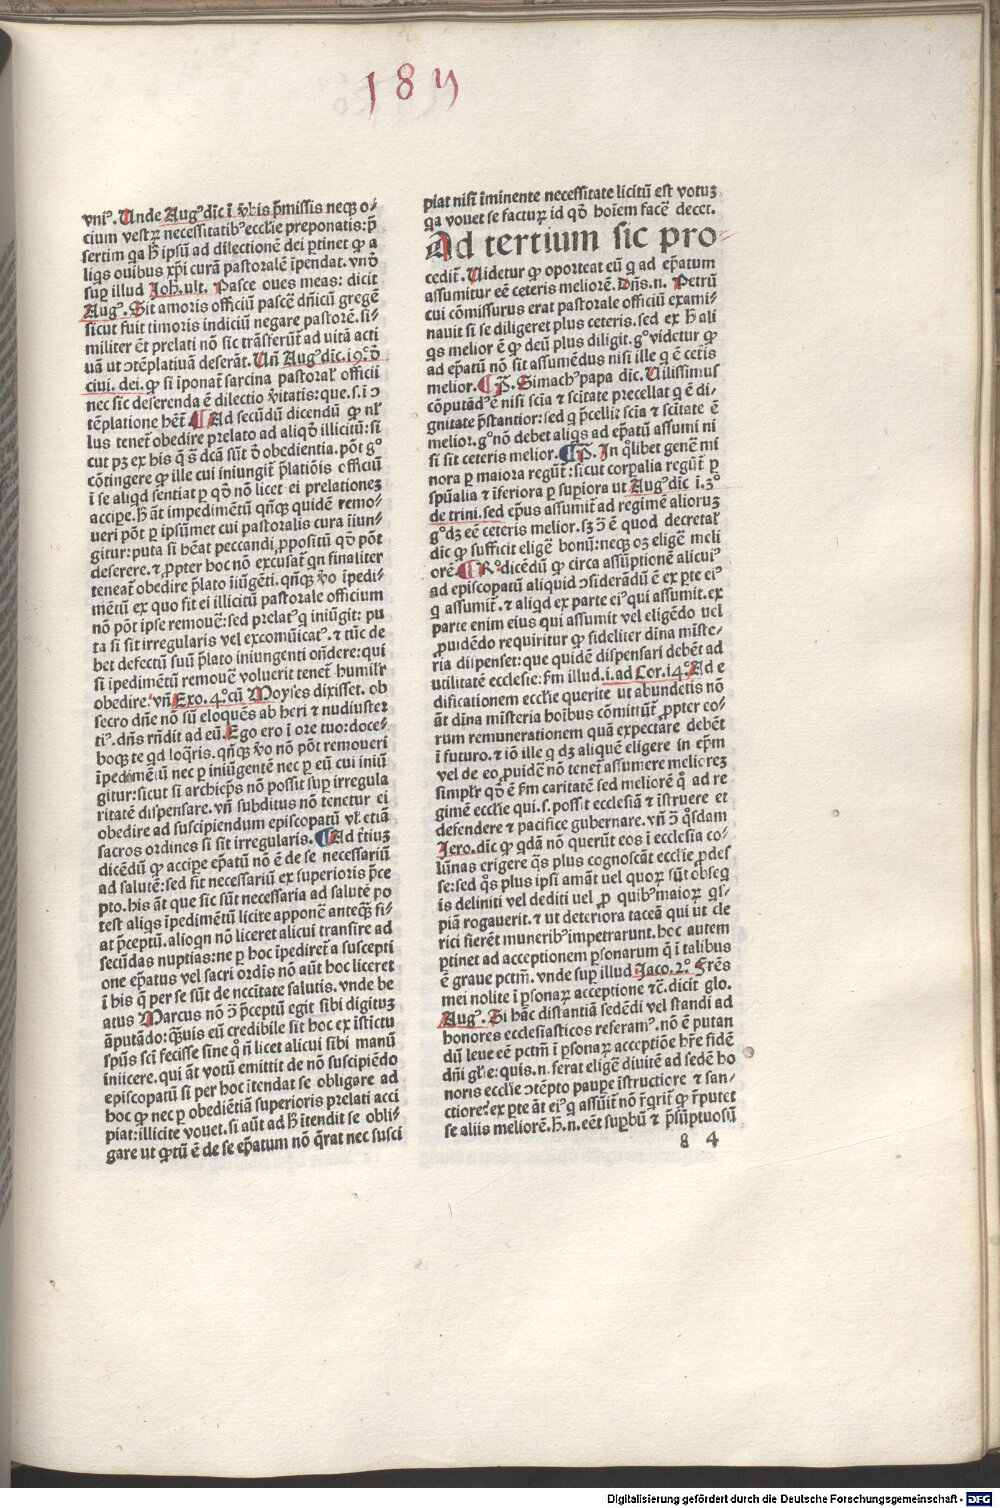 185
vniꝰ. Unde Augꝰ dic̄ ī v̄bis p̄missis neqꝫ o⸗
cium vestrꝫ necessitatibꝰ eccl̄ie preponatis: p̄
sertim qa h̄ ipsū ad dilectionē dei ꝑtinet ꝙ a
liqs ouibus xp̄i curā pastoralē īpendat. vn̄
suꝑ illud Joh̄. ult. Pasce oues meas: dicit
Augꝰ. Sit amoris officiū pascē dn̄icū gregē
sicut fuit timoris indiciū negare pastorē. si⸗
militer ēt prelati nō sic trāsferūt̄ ad uitā acti
uā ut ɔtēplatiuā deserāt. Un̄ Augꝰ dic̄. 19.
ciui. dei. ꝙ si īponat̄ sarcina pastoral̄ officii
nec sic deserenda ē dilectio v̄itatis: que. s. ī ɔ
tēplatione hēt̄. Ad secūdū dicendū ꝙ nl̄
lus tenet̄ obedire prelato ad aliqd̄ illicitū: si
cut pꝫ ex his q̄ s̄ dcā sūt d̄ obedientia. pōt gͦ
cōtingere ꝙ ille cui iniungit̄ p̄latiōis officiū
ī se aliqd sentiat ꝑ qd̄ nō licet ei prelationeꝫ
accipe. H̄ āt impedimētū qn̄qꝫ quidē remo⸗
ueri pōt ꝑ ipsūmet cui pastoralis cura īiun⸗
gitur: puta si hēat peccandi ꝓpositū qd̄ pōt
deserere. ⁊ ꝓpter hoc nō excusat̄ qn finaliter
teneat̄ obedire p̄lato īiūgēti. qn̄qꝫ v̄o īpedi⸗
mētū ex quo fit ei illicitū pastorale officium
nō pōt ipse remouē: sed prelatꝰ q iniūgit: pu
ta si sit irregularis vel excomūicatꝰ. ⁊ tūc de
bet defectū suū p̄lato iniungenti on̄dere: qui
si īpedimētū remouē voluerit tenet̄ humil̄r
obedire. vn̄ Exo. 4ͦ. cū Moyses dixisset. ob
secro dn̄e nō sū eloquēs ab heri ⁊ nudiuster
tiꝰ. dn̄s rn̄dit ad eū. Ego ero ī ore tuo: doce⸗
boqꝫ te qd loq̄ris. qn̄qꝫ v̄o nō pōt remoueri
īpedimētū nec ꝑ iniūgentē nec ꝑ eū cui iniū
gitur: sicut si archiep̄s nō possit suꝑ irregula
ritatē dispensare. vn̄ subditus nō tenetur ei
obedire ad suscipiendum episcopatū vl̄ etiā
sacros ordines si sit irregularis. Ad t̄tiuꝫ
dicēdū ꝙ accipe ep̄atū nō ē de se necessariū
ad salutē: sed fit necessariū ex superioris p̄ce
pto. his āt que sic sūt necessaria ad salutē po
test aliqs īpedimētū licite apponē anteqꝫ fi⸗
at p̄ceptū. alioqn nō liceret alicui transire ad
secūdas nuptias: ne ꝑ hoc īpediret̄ a suscepti
one ep̄atus vel sacri ordīs nō aūt hoc liceret
ī his q̄ per se sūt de nccītate salutis. vnde be
atus Marcus nō ɔ̄ p̄ceptū egit sibi digituꝫ
āputādo: qꝫuis eū credibile sit hoc ex īstīctu
spūs scī fecisse sine qͦ n̄ licet alicui sibi manū
iniicere. qui āt votū emittit de nō suscipiēdo
episcopatū si per hoc ītendat se obligare ad
hoc ꝙ nec ꝑ obediētiā superioris prelati acci
piat: illicite vouet. si aūt ad h̄ ītendit se obli⸗
gare ut ꝙtū ē de se ep̄atum nō q̄rat nec susci
piat nisi īminente necessitate licitū est votuꝫ
qa vouet se facturꝫ id qd̄ hoīem facē decet.
Ad tertium sic pro⸗
cedit̄. Uidetur ꝙ oporteat eū q ad ep̄atum
assumitur eē ceteris meliorē. Dn̄s. n. Petrū
cui cōmissurus erat pastorale officiū exami⸗
nauit si se diligeret plus ceteris. sed ex h̄ ali
qs melior ē ꝙ deū plus diligit. gͦ videtur ꝙ
ad ep̄atū nō sit assumēdus nisi ille q ē cet̄is
melior. P̄. Simachꝰ papa dic̄. Uilissimus
cōputādꝰ ē nisi scīa ⁊ scītate precellat q ē di⸗
gnitate p̄stantior: sed q p̄cellit scīa ⁊ scītate ē
melior. gͦ nō debet aliqs ad ep̄atū assumi ni
si sit ceteris melior. P̄. In qͦlibet genē mi
nora ꝑ maiora regūt̄: sicut corꝑalia regūt̄ ꝑ
spūalia ⁊ īferiora ꝑ superiora ut Augꝰ dic̄ ī. 3ͦ
de trini. sed ep̄us assumit̄ ad regimē alioruꝫ
gͦ dꝫ eē ceteris melior. sꝫ ɔ̄ ē quod decretal̄
dic̄ ꝙ sufficit eligē bonū: neqꝫ oꝫ eligē meli
orē. Rͦ. dicēdū ꝙ circa assūptionē alicuiꝰ
ad episcopatū aliquid ɔsiderādū ē ex ꝑte eiꝰ
q assumit̄. ⁊ aliqd ex parte eiꝰ qui assumit. ex
parte enim eius qui assumit vel eligēdo uel
ꝓuidēdo requiritur ꝙ fideliter dīna mīste⸗
ria dispenset: que quidē dispensari debēt ad
utilitatē ecclesie: fm̄ illud. i. ad Cor. 14ͦ. Ad e
dificationem eccl̄ie querite ut abundetis nō
āt dīna mīsteria hoībus cōmittūt̄ ꝓpter eo⸗
rum remunerationem quā expectare debēt
ī futuro. ⁊ iō ille q dꝫ aliquē eligere in ep̄m
vel de eo ꝓuidē nō tenet̄ assumere melioreꝫ
simpl̄r qd̄ ē fm̄ caritatē sed meliorē qͦ ad re
gimē eccl̄ie qui. s. possit ecclesiā ⁊ īstruere et
defendere ⁊ pacifice gubernare. vn̄ ɔ̄ qͦsdam
Jero. dic̄ ꝙ qdā nō querūt eos ī ecclesia co⸗
lūnas erigere qͦs plus cognoscāt eccl̄ie ꝓdes
se: sed qͦs plus ipsi amāt uel quorꝫ sūt obseq
īs deliniti vel dediti uel ꝓ quibꝰ maiorꝫ qs⸗
piā rogauerit. ⁊ ut deteriora taceā qui ut cle
rici fierēt muneribꝰ impetrarunt. hoc autem
ꝑtinet ad acceptionem ꝑsonarum q̄ ī talibus
ē graue pctm̄. vnde suꝑ illud Jaco. 2ͦ. Frēs
mei nolite ī ꝑsonaꝝ acceptione ⁊c̄. dicit glo.
Augꝰ. Si hāc distantiā sedēdi vel standi ad
honores ecclesiasticos referamꝰ. nō ē putan
dū leue eē pctm̄ ī ꝑsonaꝝ acceptiōe hr̄e fidē
dn̄i gl̄e: quis. n. ferat eligē diuitē ad sedē ho
noris eccl̄ie ɔtēpto paupe īstructiore ⁊ san⸗
ctiore: ex ꝑte āt eiꝰ q assūit̄ nō r̄qrit̄ ꝙ r̄putet
se aliis meliorē. h̄. n. eēt suꝑbū ⁊ p̄sūptuosū
8 4
Digitalisierung gefördert durch die Deutsche Forschungsgemeinschaft - DFG